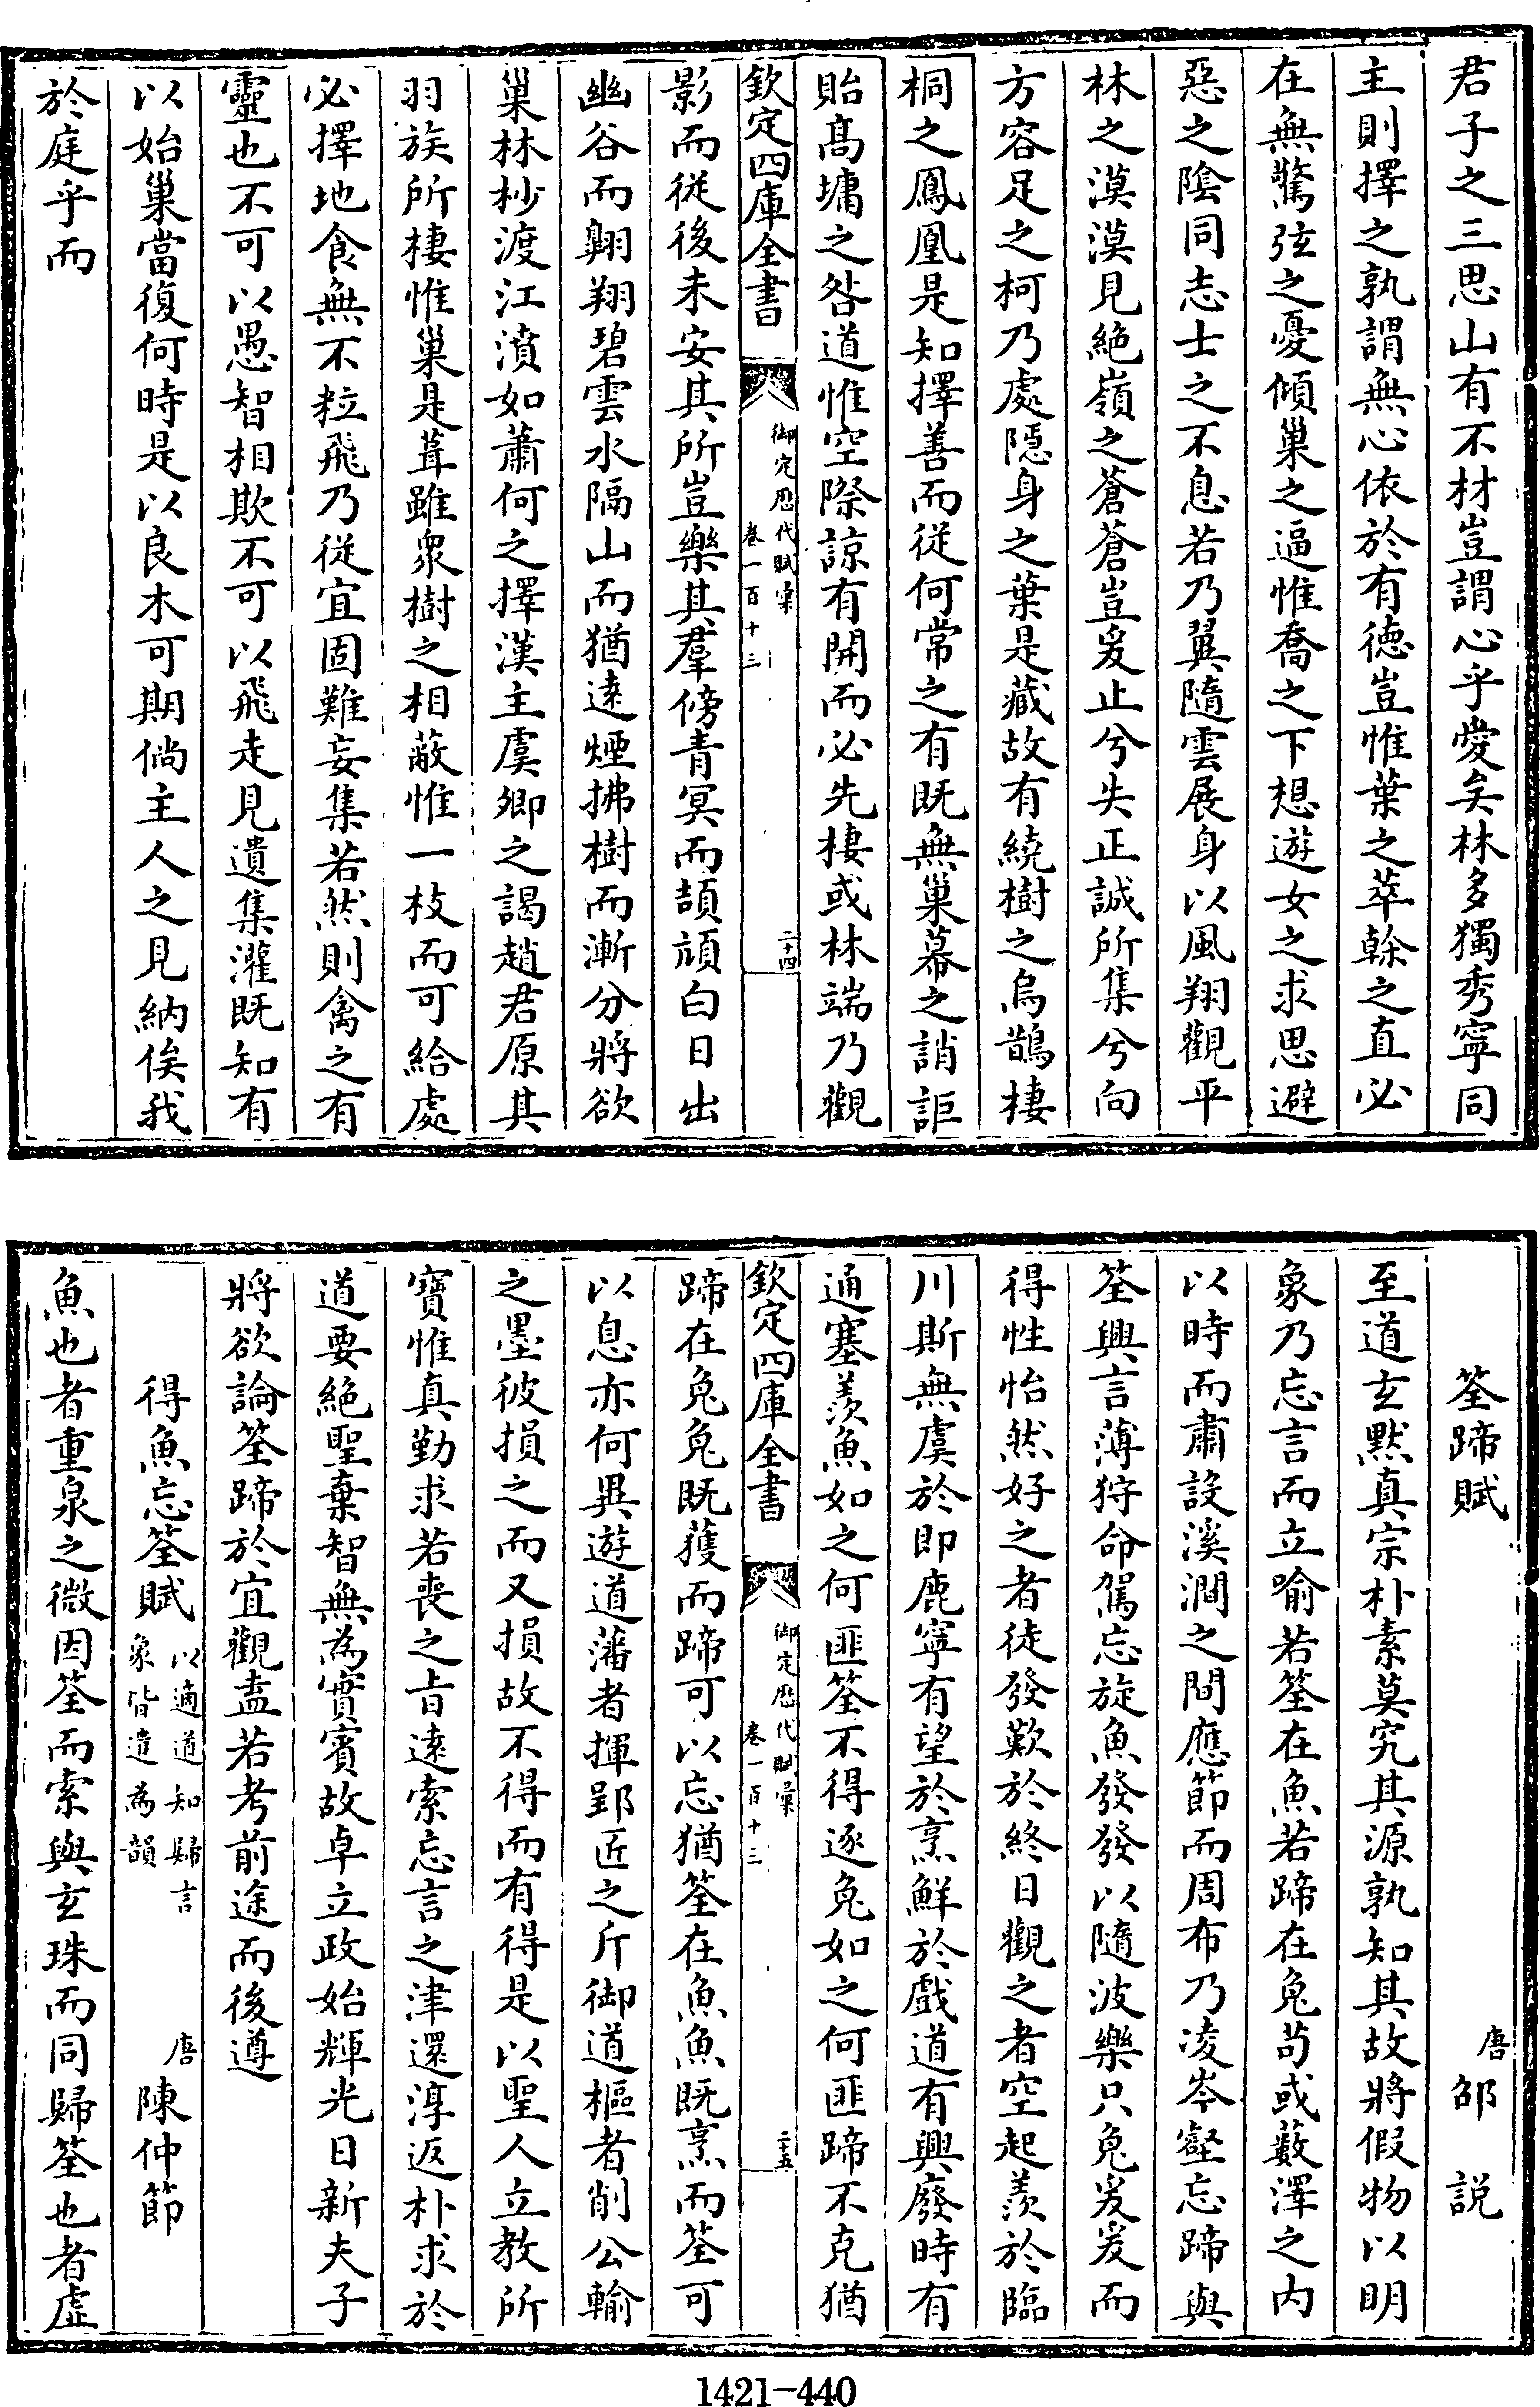 君子之三思山有不材豈謂心乎愛矣林多獨秀寧同
主則擇之孰謂無心依於有徳豈惟葉之萃榦之直必
在無驚弦之憂傾巢之逼惟喬之下想遊女之求思避
惡之陰同志士之不息若乃翼隨雲展身以風翔觀平
林之漠漠見絶嶺之蒼蒼豈爰止兮失正誠所集兮向
方容足之柯乃處隠身之葉是藏故有繞樹之烏鵲棲
桐之鳳凰是知擇善而從何常之有既無巢幕之誚詎
貽髙墉之咎道惟空際諒有開而必先棲或林端乃觀
欽定四庫全書
御定歴代賦彙
卷一百十三
二十四
影而從後未安其所豈樂其羣傍青冥而頡頏白日出
幽谷而翺翔碧雲水隔山而猶逺煙拂樹而漸分將欲
巢林杪渡江濆如蕭何之擇漢主虞卿之謁趙君原其
羽族所棲惟巢是葺雖衆樹之相蔽惟一枝而可給處
必擇地食無不粒飛乃從宜固難妄集若然則禽之有
靈也不可以愚智相欺不可以飛走見遺集灌既知有
以始巢當復何時是以良木可期倘主人之見納俟我
於庭乎而
筌蹄賦
唐 邵 説
至道玄黙真宗朴素莫究其源孰知其故將假物以明
象乃忘言而立喻若筌在魚若蹄在兔茍或藪澤之内
以時而肅設溪澗之間應節而周布乃凌岑壑忘蹄與
筌興言薄狩命駕忘旋魚發發以隨波樂只兔爰爰而
得性怡然好之者徒發歎於終日觀之者空起羨於臨
川斯無虞於即鹿寧有望於烹鮮於戲道有興廢時有
通塞羨魚如之何匪筌不得逐兔如之何匪蹄不克猶
欽定四庫全書
御定歴代賦彙
卷一百十三
二十五
蹄在兔兔既獲而蹄可以忘猶筌在魚魚既烹而筌可
以息亦何異遊道藩者揮郢匠之斤御道樞者削公輸
之墨彼損之而又損故不得而有得是以聖人立教所
寶惟真勤求若喪之㫖逺索忘言之津還淳返朴求於
道要絶聖棄智無為實賓故卓立政始輝光日新夫子
將欲論筌蹄於宜觀盍若考前途而後遵
得魚忘筌賦
以適道知歸言
象皆遣為韻
唐 陳仲節
魚也者重泉之微因筌而索與玄珠而同歸筌也者虚
1421-440